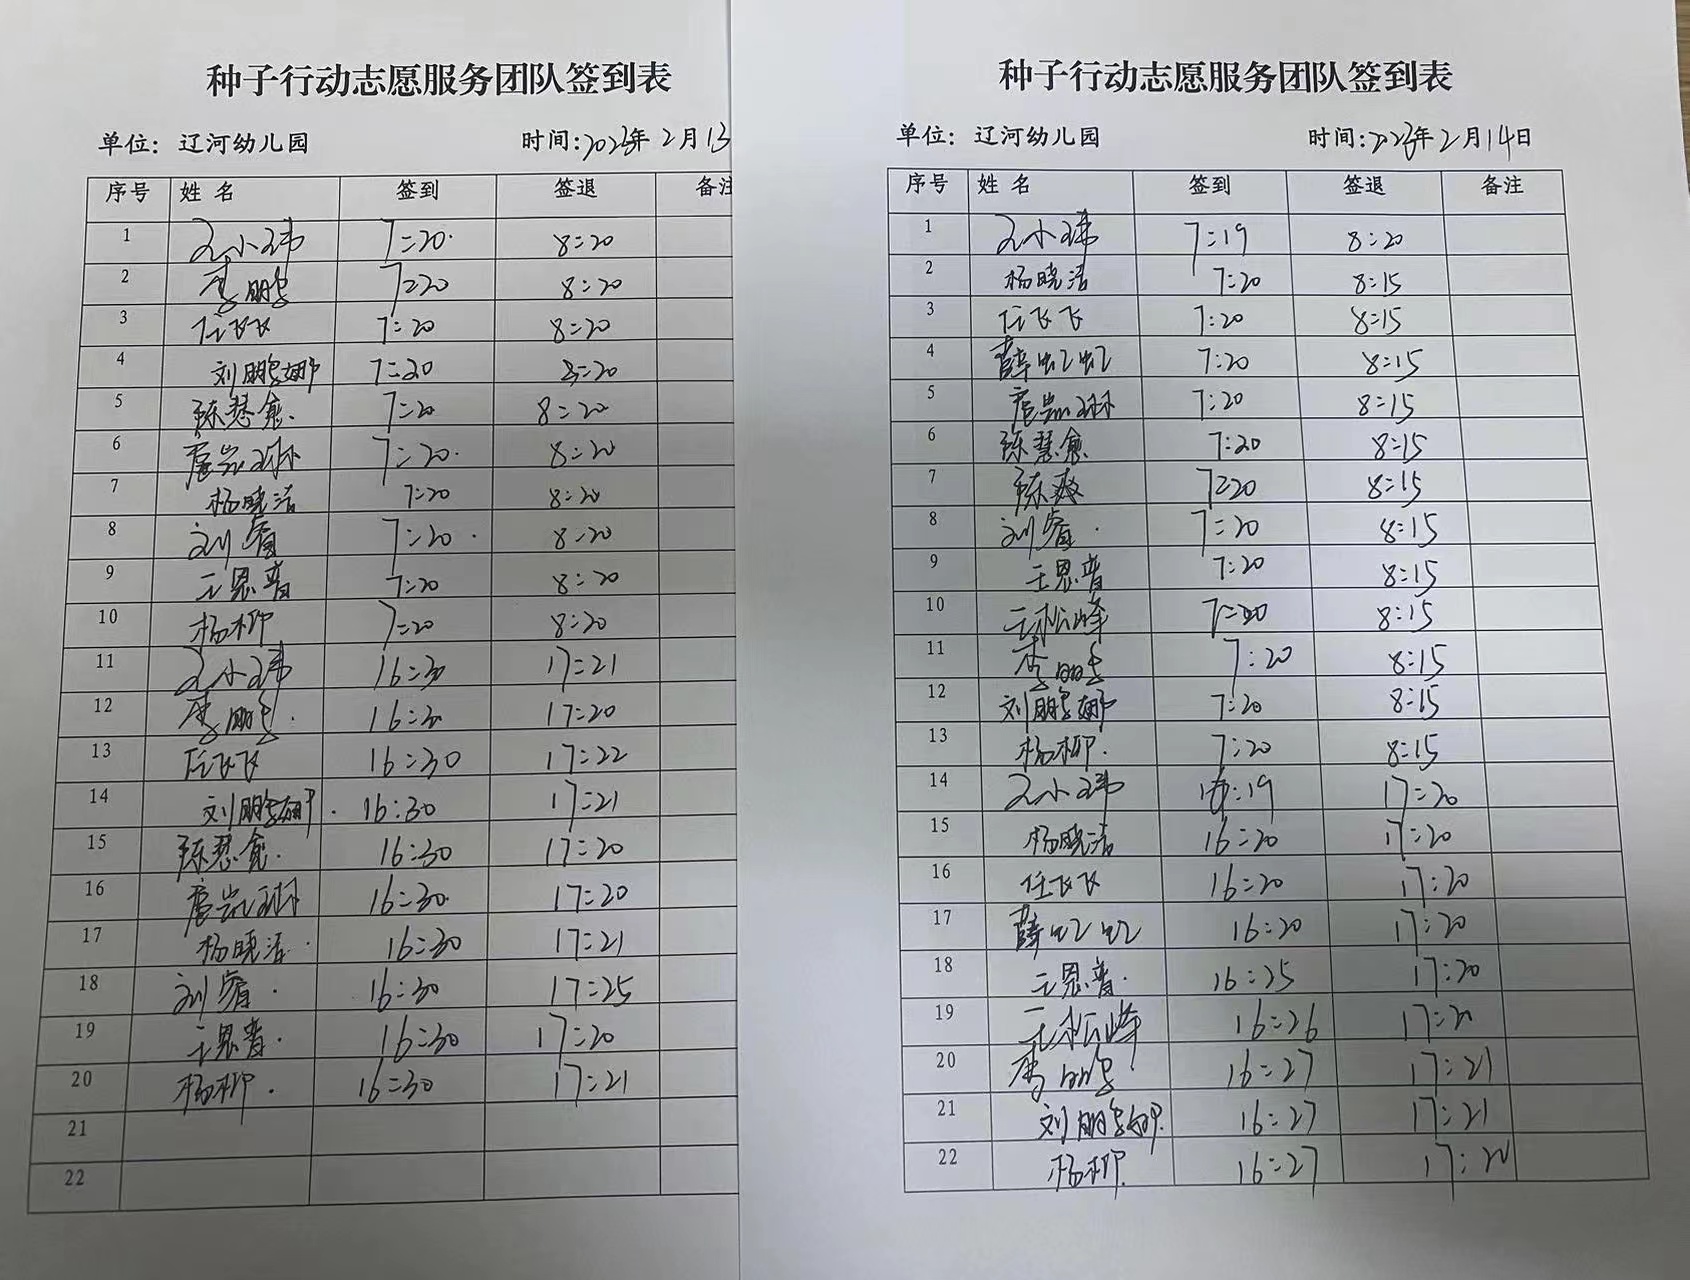 种子行动志愿服务团队签到表
单位：辽河幼儿园 时间:2023年2月13
序号 姓名 签到 签退 备注
1 王小玮 7:20 8:20
2 李鹏 7:20 8:20
3 任飞飞 7:20 8:20
4 刘鹏娜 7:20 8:20
5 陈慧愈 7:20 8:20
6 7:20 8:20
7 杨晓洁 7:20 8:20
8 刘睿 7:20 8:20
9 王恩普 7:20 8:20
10 杨柳 7:20 8:20
11 王小玮 16:30 17:21
12 李鹏 16:30 17:20
13 任飞飞 16:30 17:22
14 刘鹏娜 16:30 17:21
15 陈慧愈 16:30 17:20
16 16:30 17:20
17 杨晓洁 16:30 17:21
18 刘睿 16:30 17:25
19 王恩普 16:30 17:20
20 杨柳 16:30 17:21
21
22
种子行动志愿服务团队签到表
单位：辽河幼儿园 时间:2023年2月14日
序号 姓名 签到 签退 备注
1 王小玮 7:19 8:20
2 杨晓洁 7:20 8:15
3 任飞飞 7:20 8:15
4 薛虹虹 7:20 8:15
5 7:20 8:15
6 陈慧愈 7:20 8:15
7 陈爽 7:20 8:15
8 刘睿 7:20 8:15
9 王恩普 7:20 8:15
10 王松峰 7:20 8:15
11 李鹏 7:20 8:15
12 刘鹏娜 7:20 8:15
13 杨柳 7:20 8:15
14 王小玮 16:19 17:20
15 杨晓洁 16:20 17:20
16 任飞飞 16:20 17:20
17 薛虹虹 16:20 17:20
18 王恩普 16:25 17:20
19 王松峰 16:26 17:21
20 李鹏 16:27 17:21
21 刘鹏娜 16:27 17:21
22 杨柳 16:27 17:20